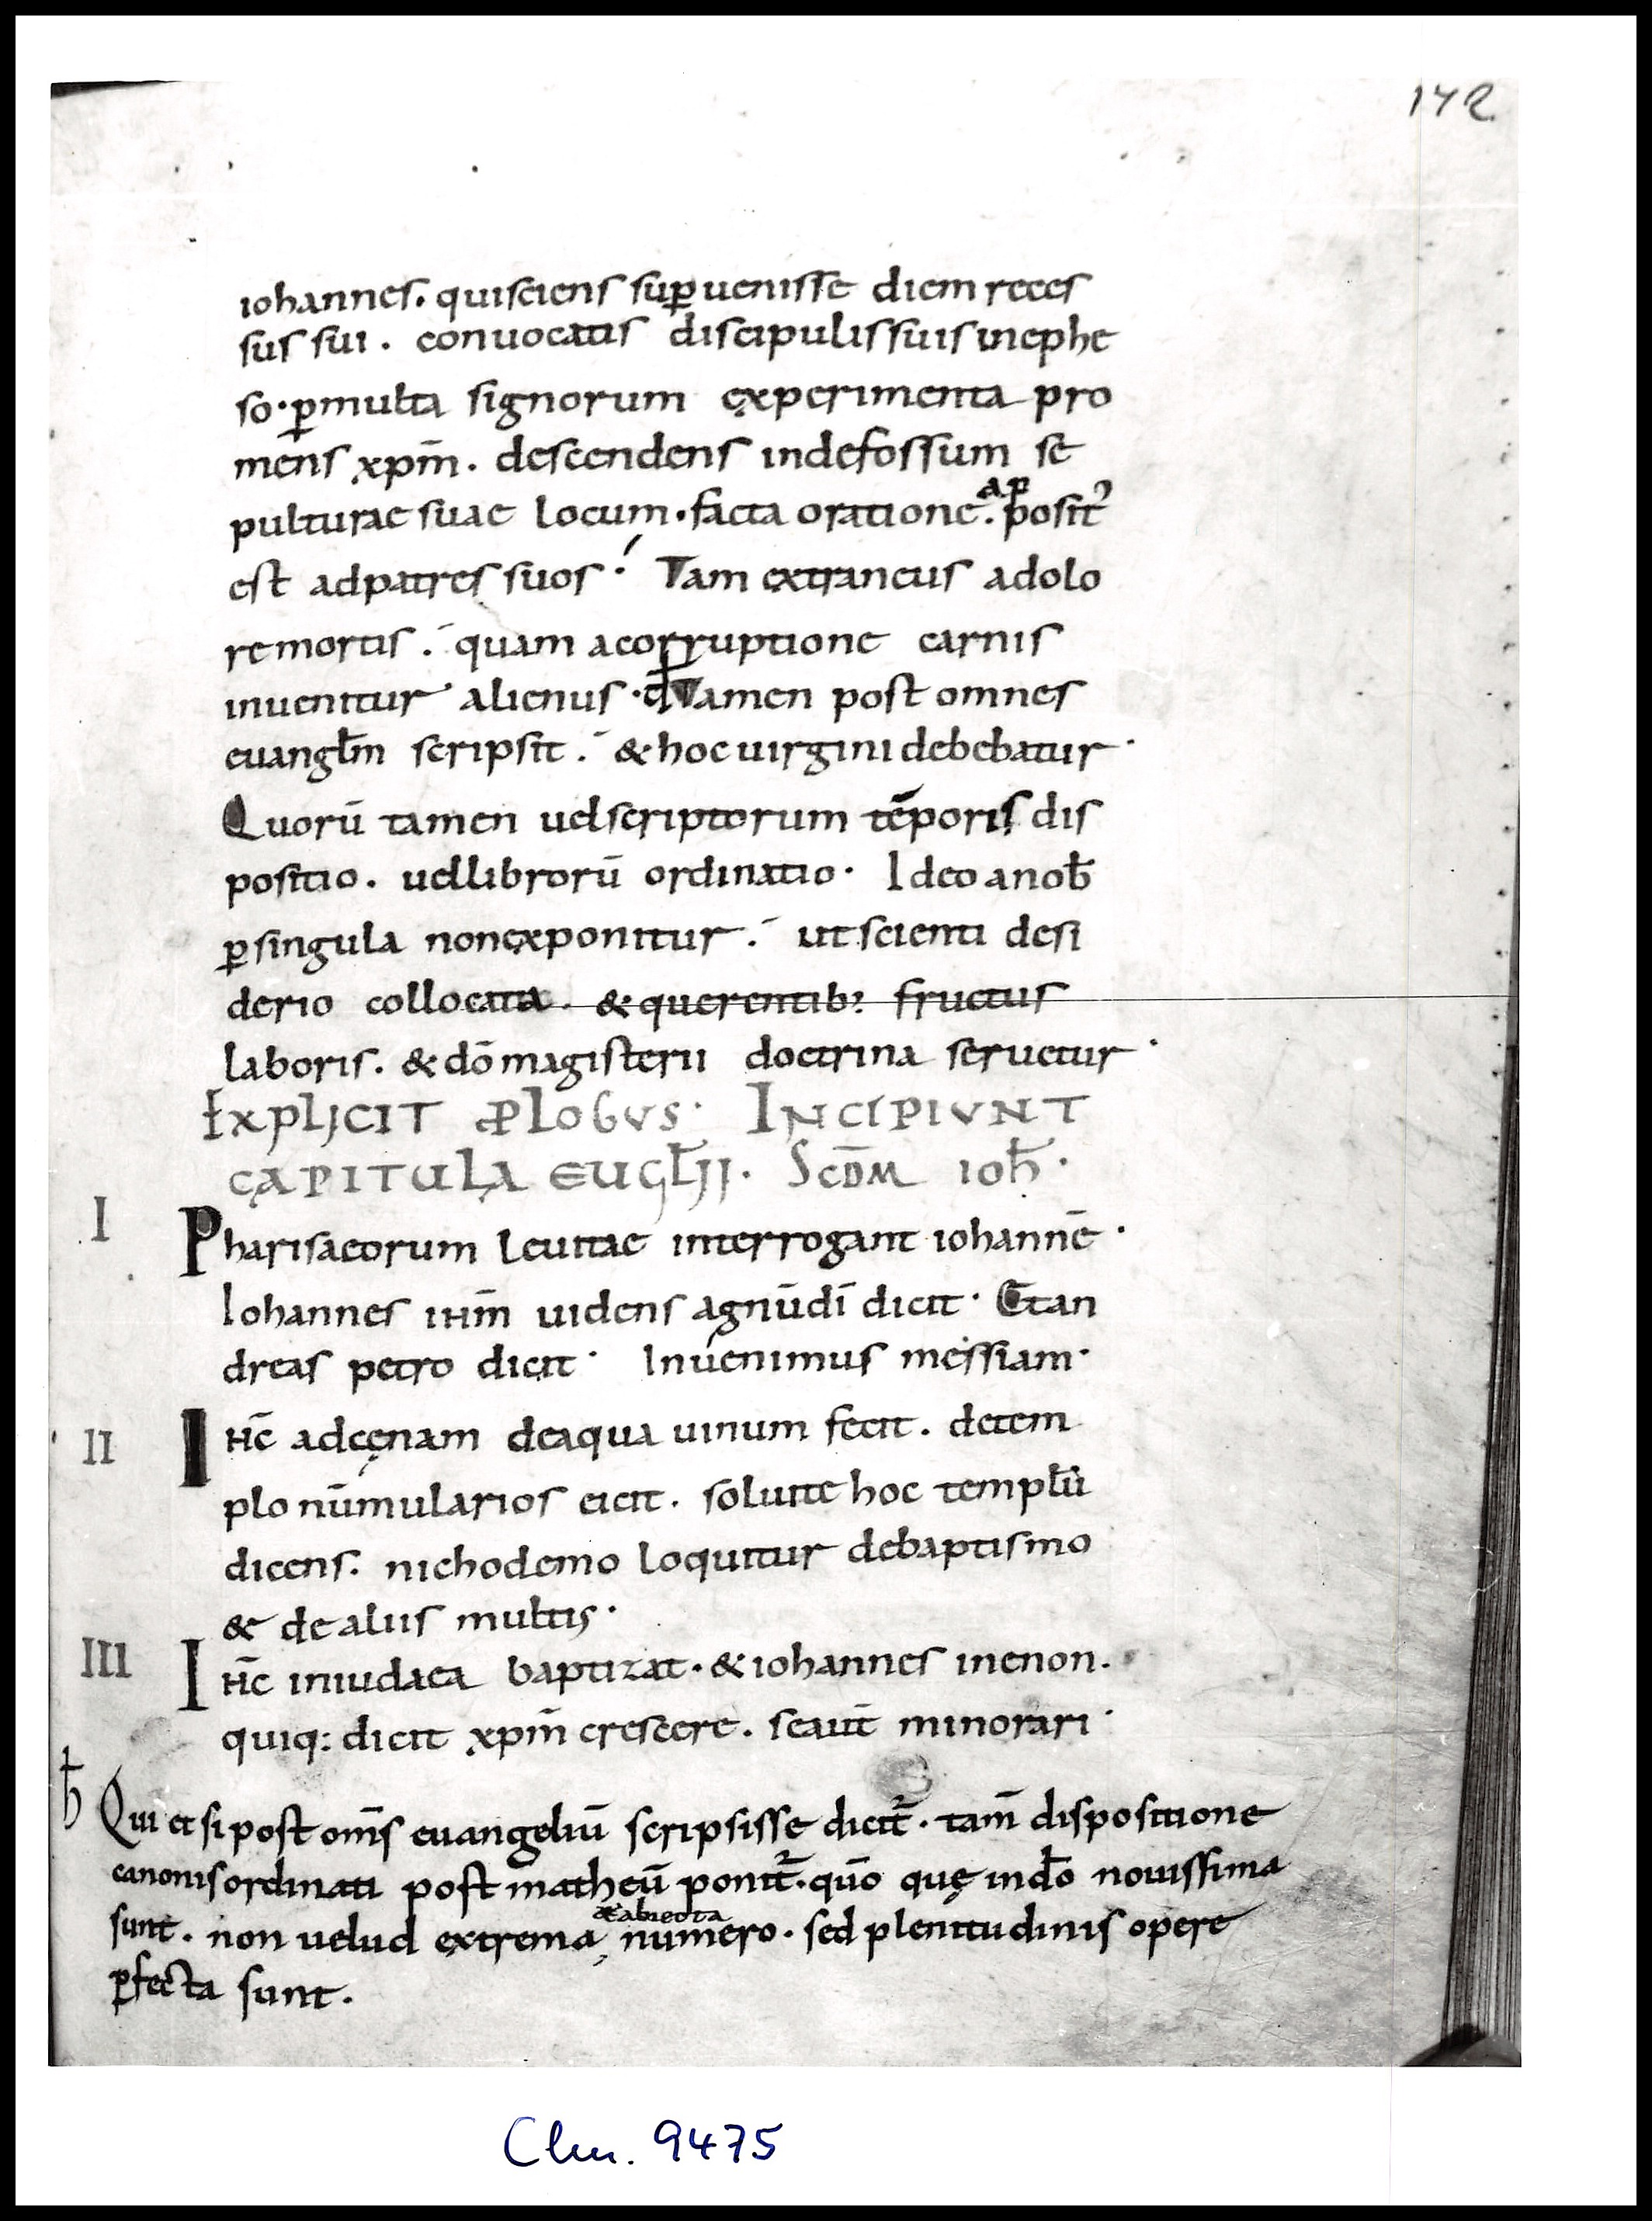 142
iohannes. quisciens suꝑuenisse diem reces
sus sui. conuocatis discipulis suis inephe
so· ꝑmulta signorum experimenta pro
mens xp̄m. descendens indefossum se
pulturae suae locum· facta oratione. apposit᾿
est adpatres suos· Tam extraneus adolo
re mortis. quam acorruptione carnis
inuenitur alienus· Tamen post omnes
euangl̄m scripsit. & hoc uirgini debebatur·
Quorū tamen uelscriptorum tēporis dis
positio. uellibrorū ordinatio· Ideo anob̄
ꝑsingula nonexponitur. ut scienti desi
derio collocata. & querentib: fructus
laboris. & dō magisterii doctrina seruetur·
EXPLICIT PLOGUS· INCIPIUNT
CAPITULA EUGL̄II. SCD̄M IOH̄·
I Pharisaeorum leuitae interrogant iohannē·
Iohannes ihm̄ uidens agnūdī dicit· Etan
dreas petro dicit· Inuenimus messiam·
II Ihc̄ adcęnam deaqua uinum fecit. detem
plo nūmularios eicit. soluite hoc templū
dicens. nichodemo loquitur debaptismo
& de aliis multis·
III Ihc̄ iniudaea baptizat· & iohannes inenon.
quiq: dicit xpm̄ crescere. seaut̄ minorari·
h̄ Qui et si post om̄s euangeliū scripsisse dicit᷑. tam̄ dispositione
canonis ordinati post matheū ponit᷑. quō quę indō nouissima
sunt. non uelud extrema & abiecta numero. sed plenitudinis opere
ꝑfecta sunt.
Clm. 9475